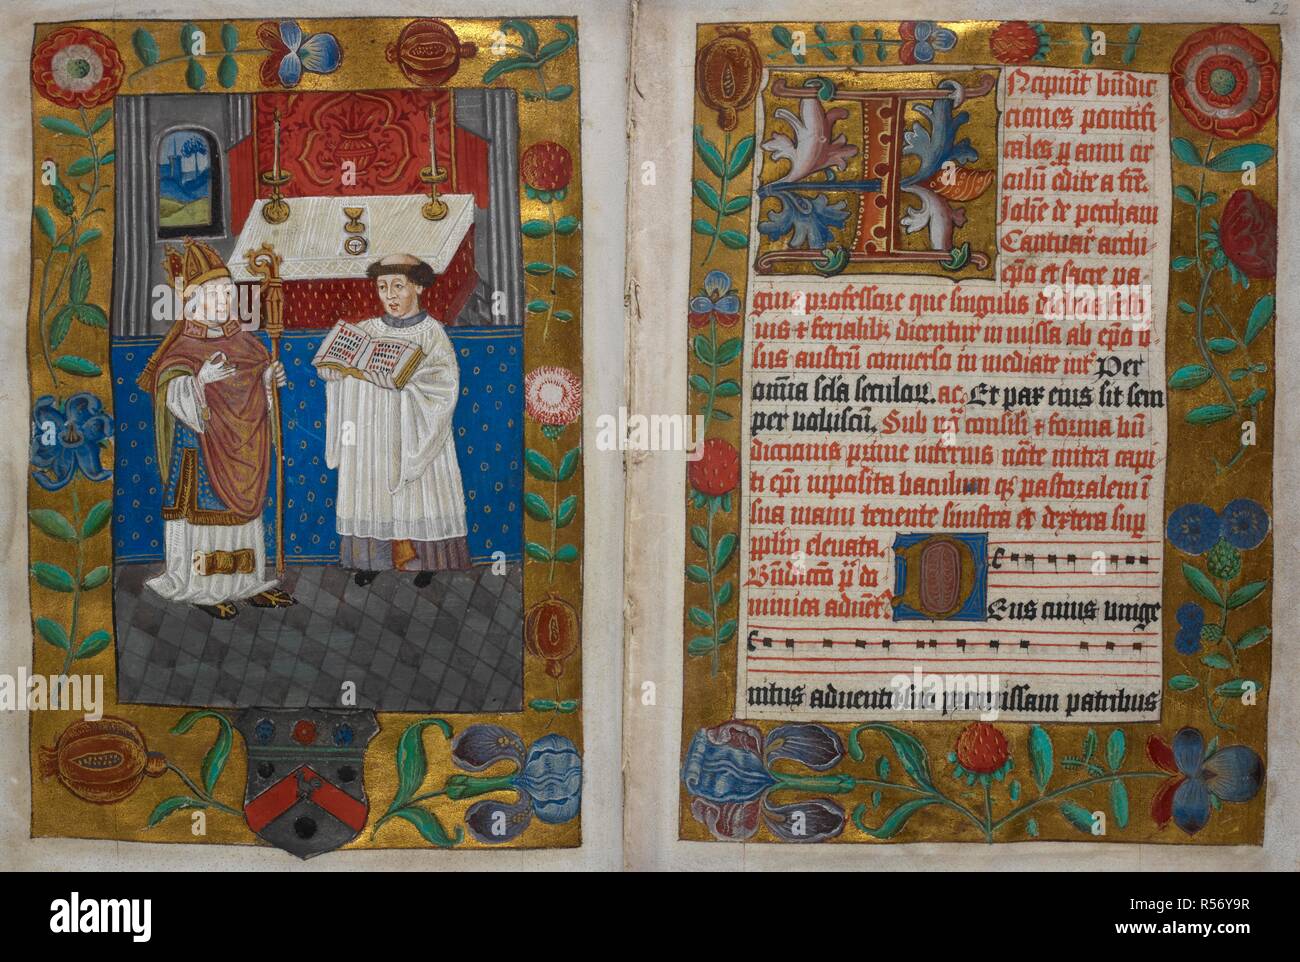 22
Incipiūt bn̄dic
ciones pontifi
cales p anni cir
culū edite a frē.
Joh̄e de peccham
Cantuar̄ archi-
ep̄o et sacre pa-
gine professore que singulis diebus festi
uis ⁊ ferialib; dicentur in missa ab ep̄o
sus austrū conuerso in mediate int̄ Per
om̄ia sc̄la seculor. ac. Et pax eius sit sem
per uobiscū. Sub consili ⁊ forma bn̄
dictionis prime inferius mitra capi
ti ep̄i inposita baculum qȝ pastoralem ī
sua manu tenente sinistra et dextera sup
eleuata.
Bn̄dictō p do
minica aduēt̄
Eus cuius unige
nitus aduentū suū promissam patribus
alamy
www.alamy.com
Image ID: R56Y9R